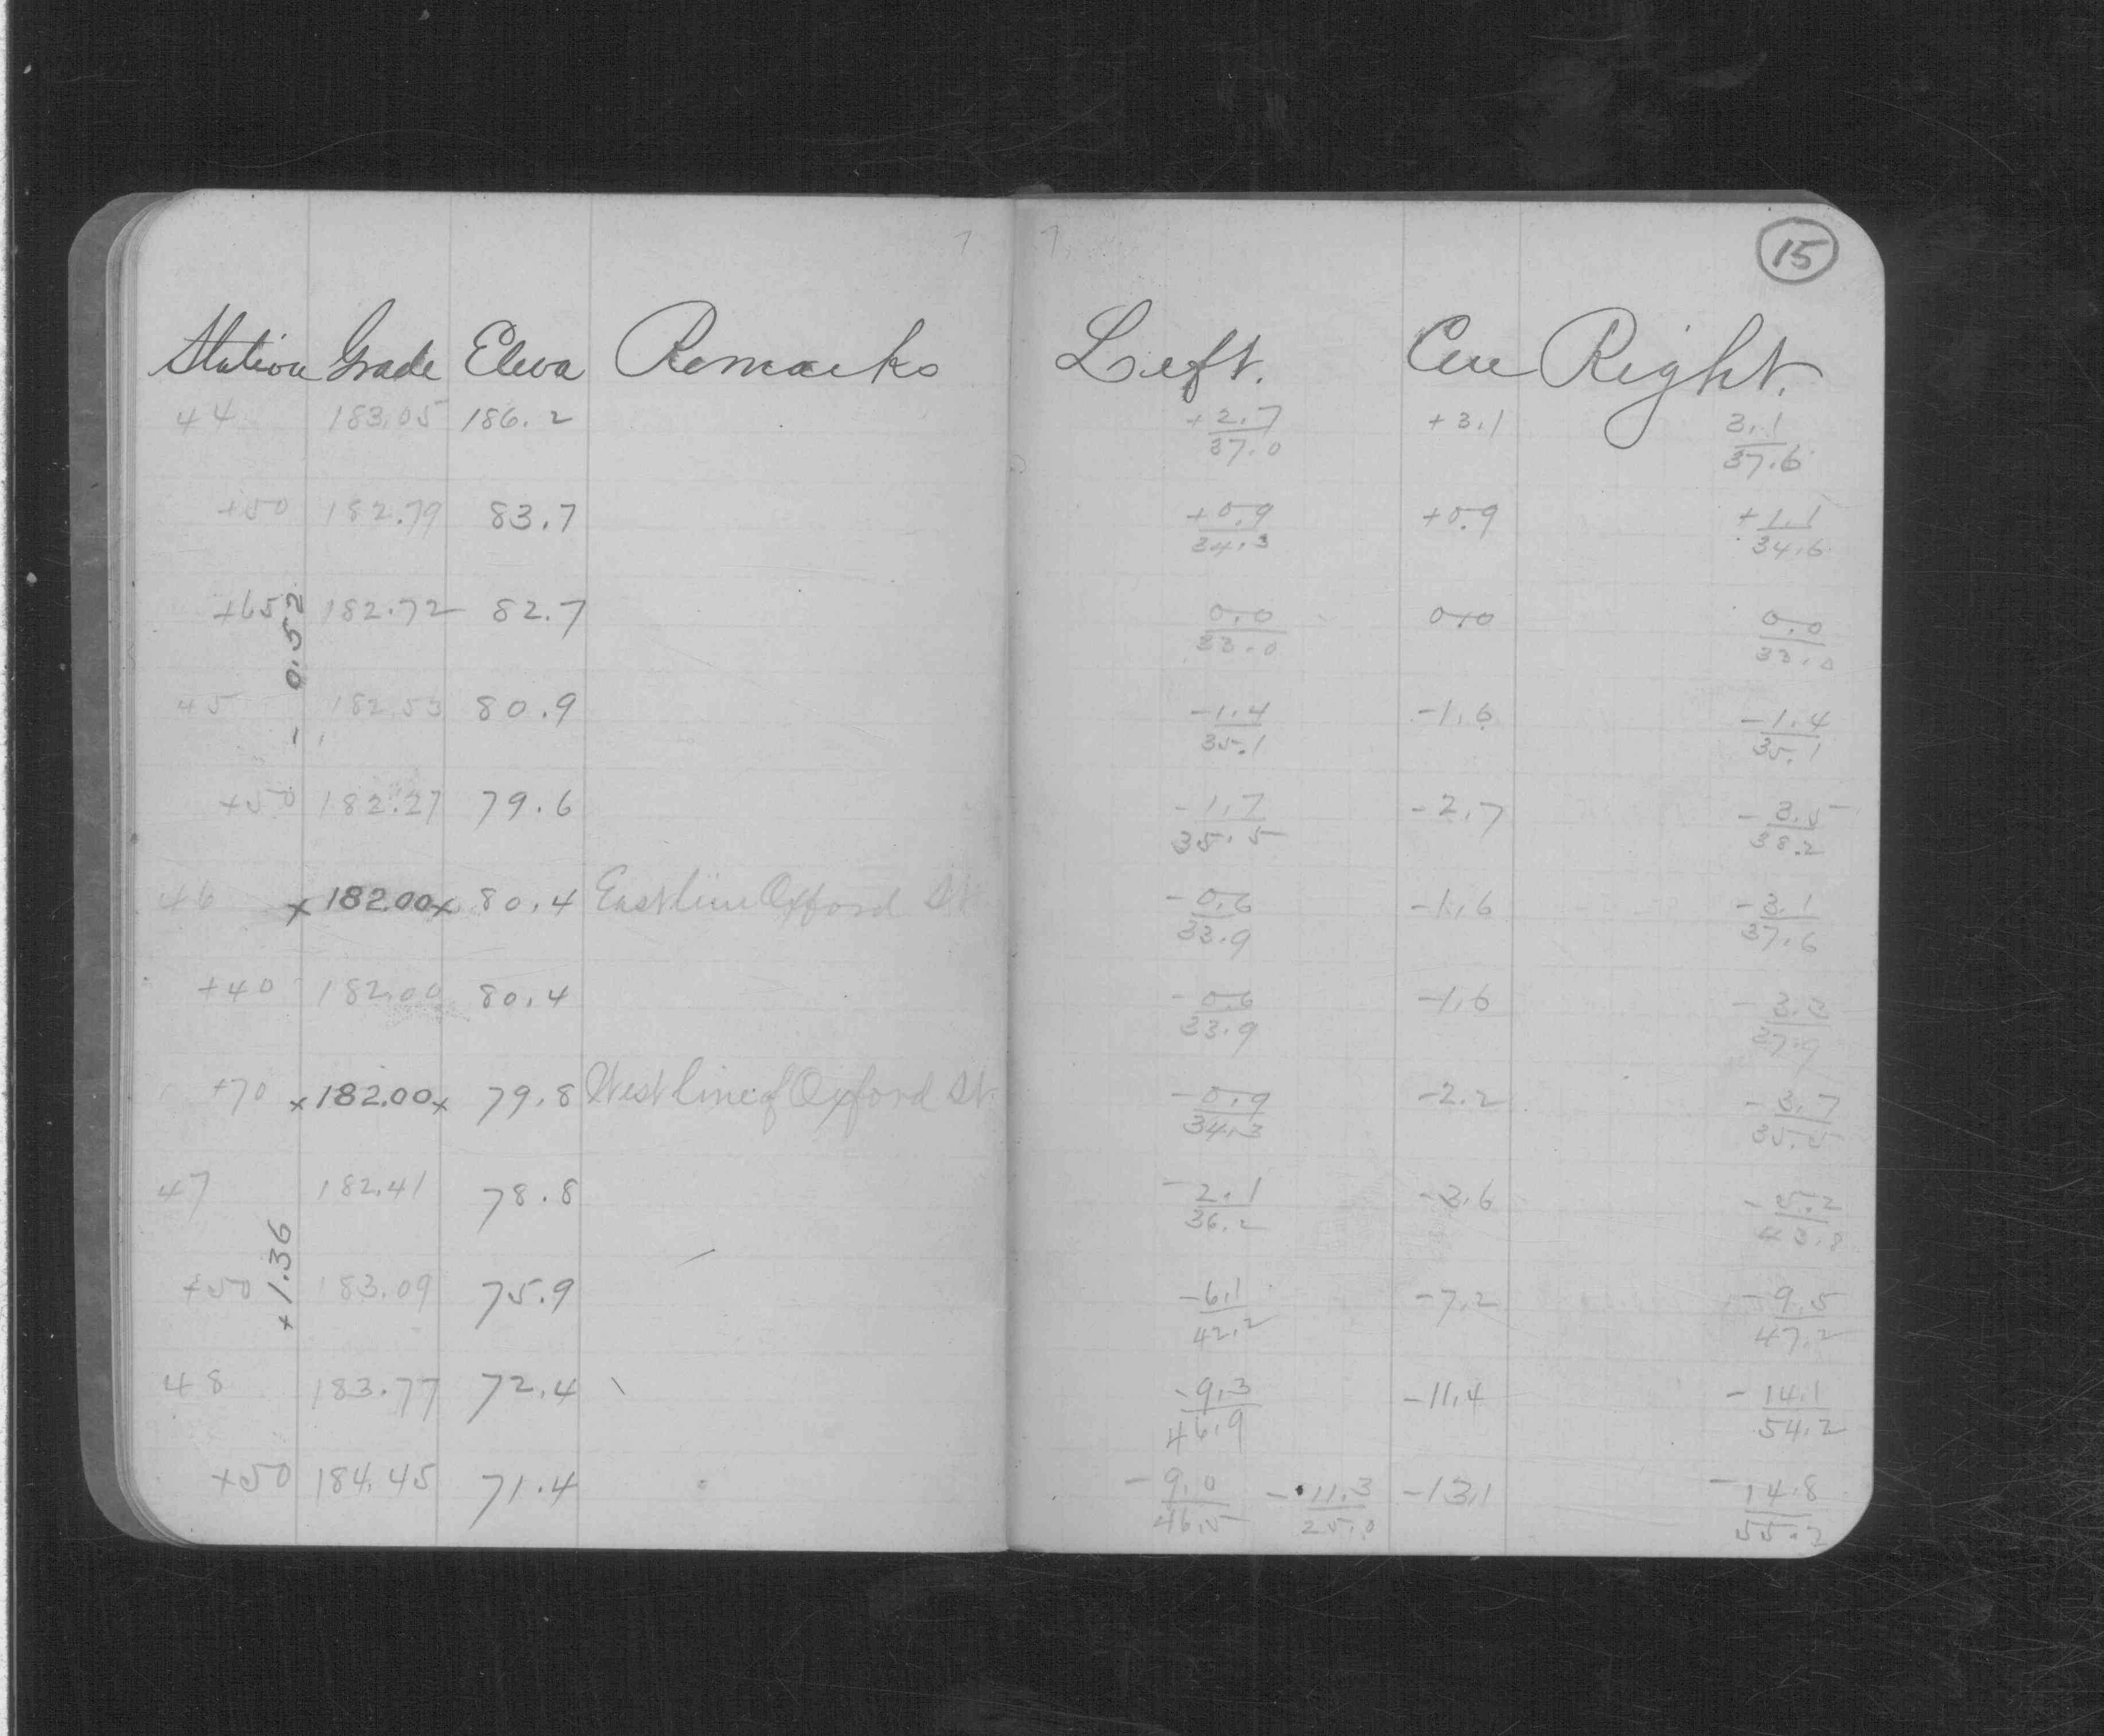 15
Station Grade Eleva Remarks Left. Cen Right.
44 183.05 186.2 +2.7/37.0 +3.1 3.1/37.6
+50 182.79 83.7 +0.9/34.3 +0.9 +1.1/34.6
+65 182.72 82.7 0.0/33.0 0.0 0.0/33.0
- 0.52
45 182.53 80.9 -1.4/35.1 -1.6 -1.4/35.1
+50 182.27 79.6 -1.7/35.5 -2.7 -3.5/38.2
46 x 182.00 x 80.4 East line Oxford St -0.6/33.9 -1.6 -3.1/37.6
+40 182.00 80.4 -0.6/33.9 -1.6 -3.3/37.9
+70 x 182.00 x 79.8 West line of Oxford St. -0.9/34.3 -2.2 -3.7
47 182.41 78.8 -2.1/36.2 -3.6 -5.2
+ 1.36
+50 183.09 75.9 -6.1/42.2 -7.2 -9.5/47.2
48 183.77 72.4 -9.3/46.9 -11.4 -14.1/54.2
+50 184.45 71.4 -9.0/46.5 -11.3/25.0 -13.1 -14.8/55.2